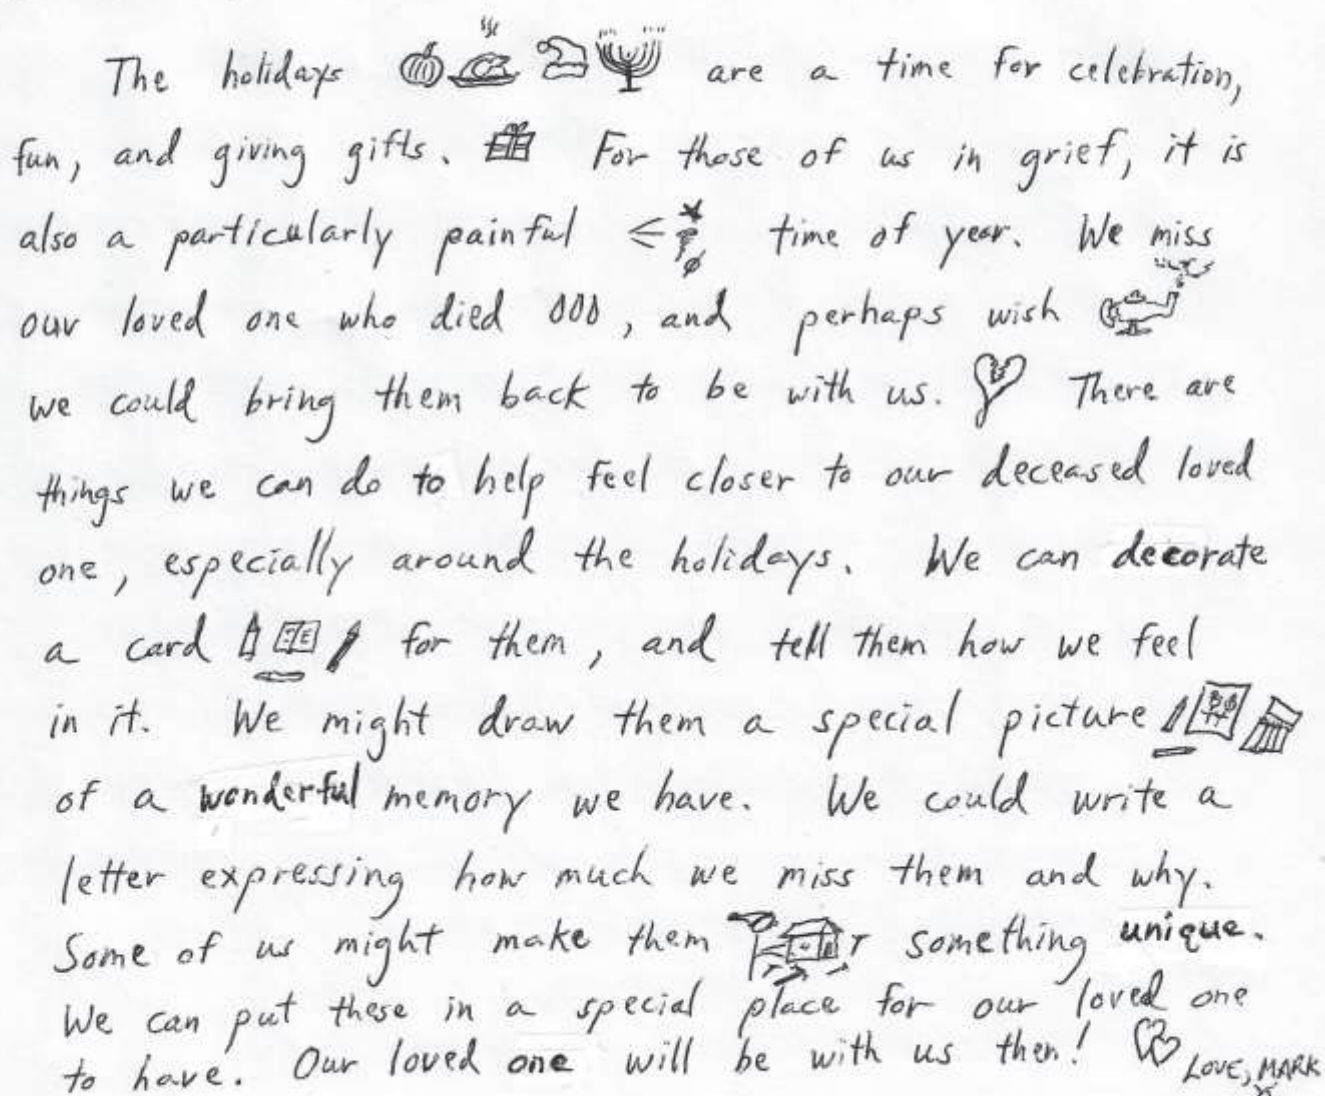 The holidays are a time for celebration,
fun, and giving gifts. For those of us in grief, it is
also a particularly painful time of year. We miss
our loved one who died, and perhaps wish
we could bring them back to be with us. There are
things we can do to help feel closer to our deceased loved
one, especially around the holidays. We can decorate
a card for them, and tell them how we feel
in it. We might draw them a special picture
of a wonderful memory we have. We could write a
letter expressing how much we miss them and why.
Some of us might make them something unique.
We can put these in a special place for our loved one
to have. Our loved one will be with us then! LOVE, MARK